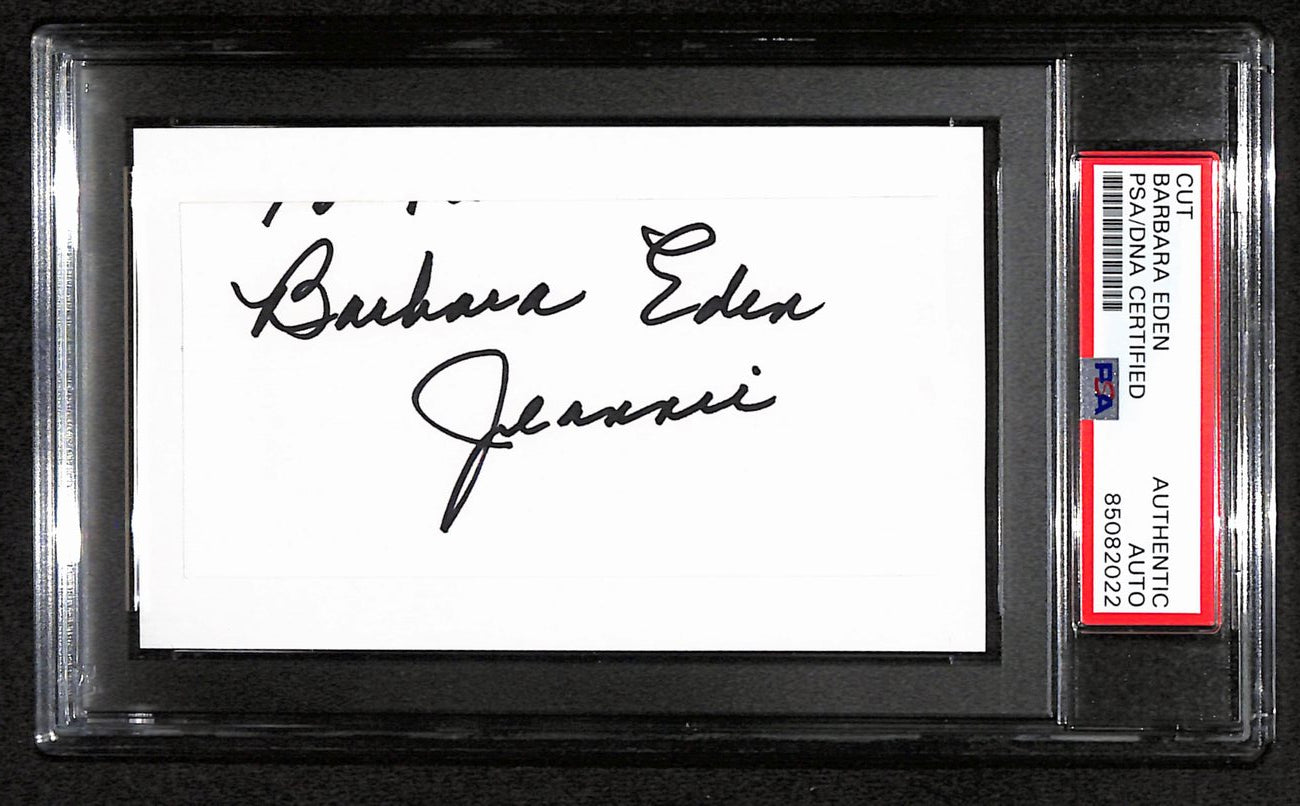 Barbara Eden
Jeannie
CUT
BARBARA EDEN
PSA/DNA CERTIFIED
PSA
AUTHENTIC
AUTO
85082022